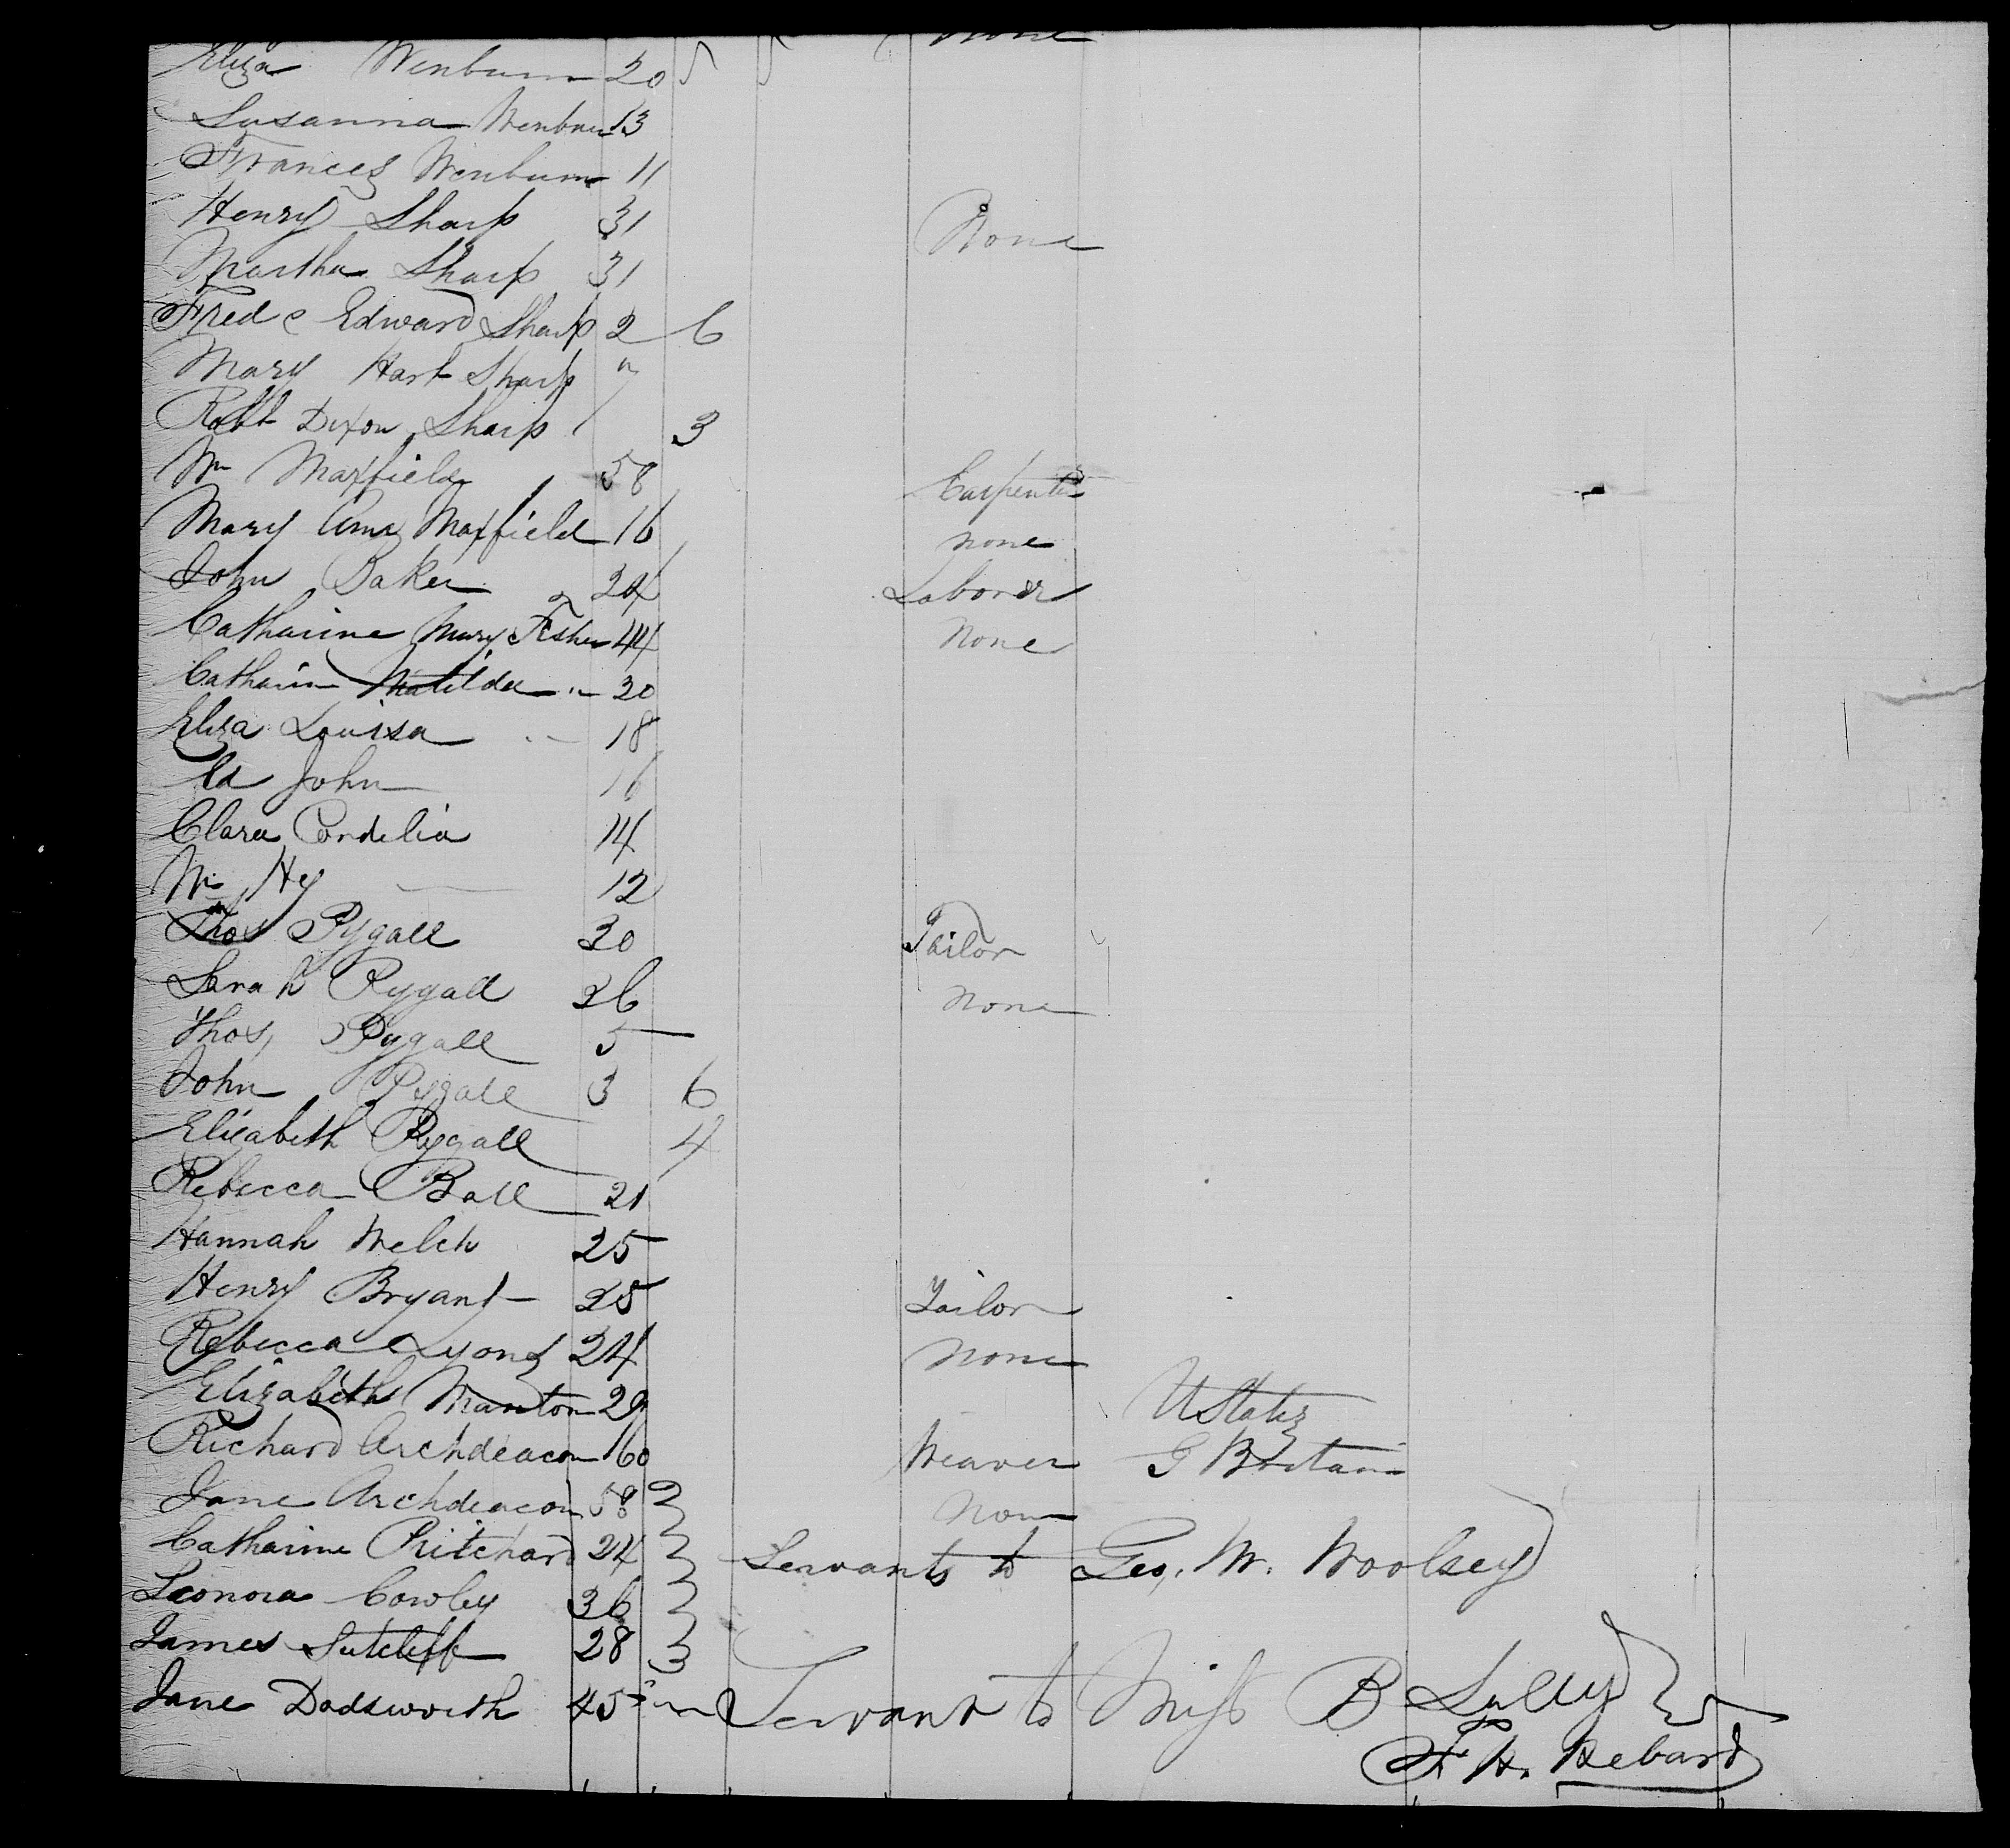 None
Eliza Wenburn 20
Susanna Wenburn 13
Frances Wenburn 11
Henry Sharp 31 None
Martha Sharp 31
Fred c Edward Sharp 2 6
Mary Hart Sharp "
Robt Dixon Sharp 1 3
Wm Maxfield 58 Carpenter
Mary Ann Maxfield 16 none
John Baker 24 Laborer
Catharine Mary Fisher 44 None
Catharin Matilda " 20
Eliza Louisa " 18
Ed John 16
Clara Cordelia 14
Wm Hy 12
Thos Pygall 30 Tailor
Sarah Pygall 26 none
Thos Pygall 5
John Pygall 3 6
Elizabeth Pygall 4
Rebecca Ball 21
Hannah Welch 25
Henry Bryant 25 Tailor
Rebecca Lyons 24 none
Elizabeth Manton 29 U States
Richard Archdeacon 60 Weaver G Britain
Jane Archdeacon 58 None
Catharine Pritchard 24 Servants to Geo. W. Woolsey
Leonora Cowley 36
James Sutcliff 28
Jane Dodsworth 45 Servant to Miss B Lilly
F H. Hebard